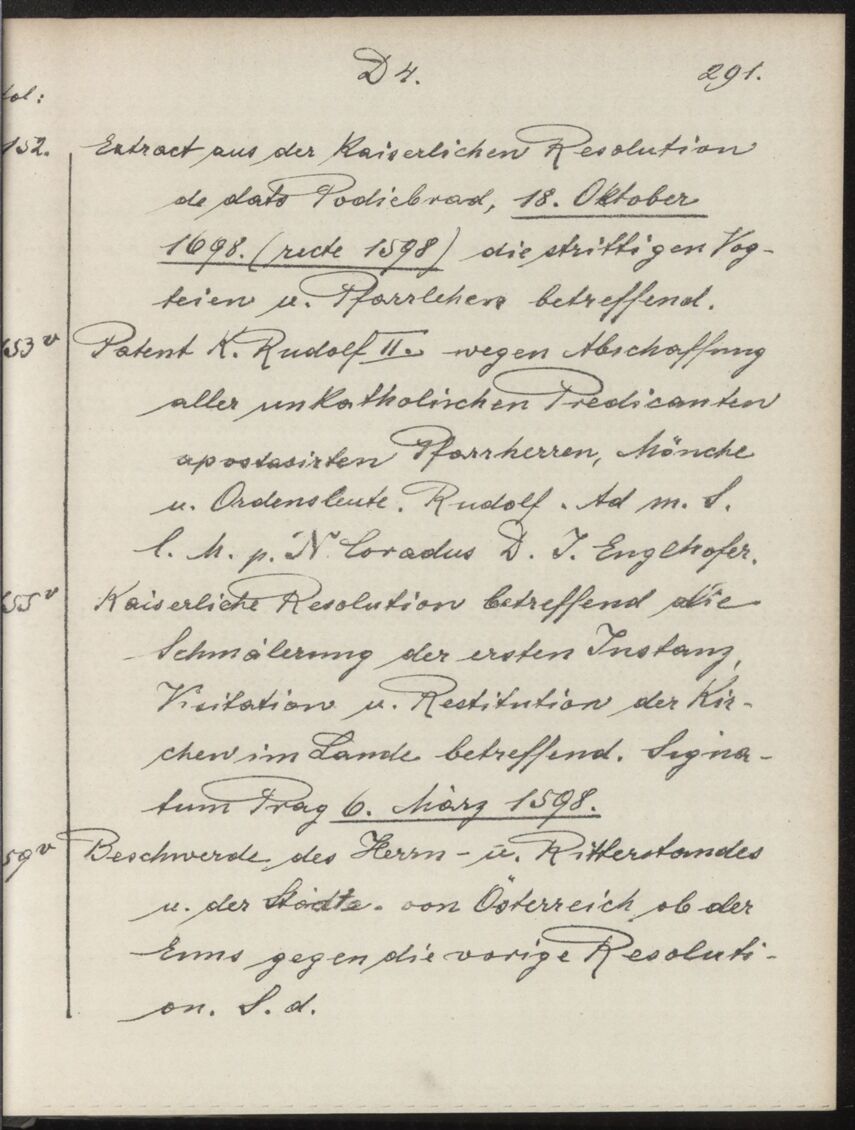 D4. 291.
fol:
152. Extract aus der Kaiserlichen Resolution
de dato Podiebrad, 18. Oktober
1698. (recte 1598) die strittigen Vog-
teien u. Pfarrlehen betreffend.
153v Patent K. Rudolf II. wegen Abschaffung
aller unkatholischen Predicanten
apostasirten Pfarrherren, Mönche
u. Ordensleute. Rudolf. Ad m. S.
C. M. p. N. Coradus D. J. Englhofer.
155v Kaiserliche Resolution betreffend die
Schmälerung der ersten Instanz,
Visitation u. Restitution der Kir-
chen im Lande betreffend. Signa-
tum Prag 6. März 1598.
159v Beschwerde des Herrn- u. Ritterstandes
u. der Städte von Österreich ob der
Enns gegen die vorige Resoluti-
on. S. d.